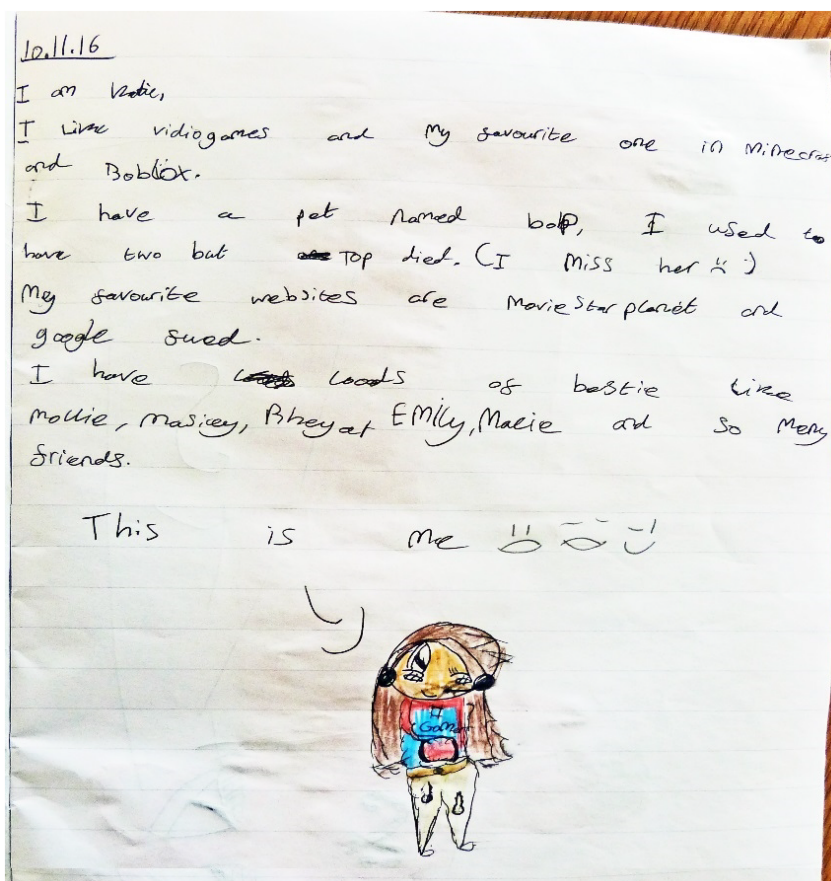 10.11.16
I am Katie,
I Like vidiogames and My favourite one in Minecraf
and Boblox.
I have a pet named bob, I used to
have two but TOP died. (I Miss her :)
My favourite websites are MovieStarplanet and
google
I have loads of bestie Like
Mollie, Masicey, EMILY, Macie and so Meny
friends.
This is me
Gamer